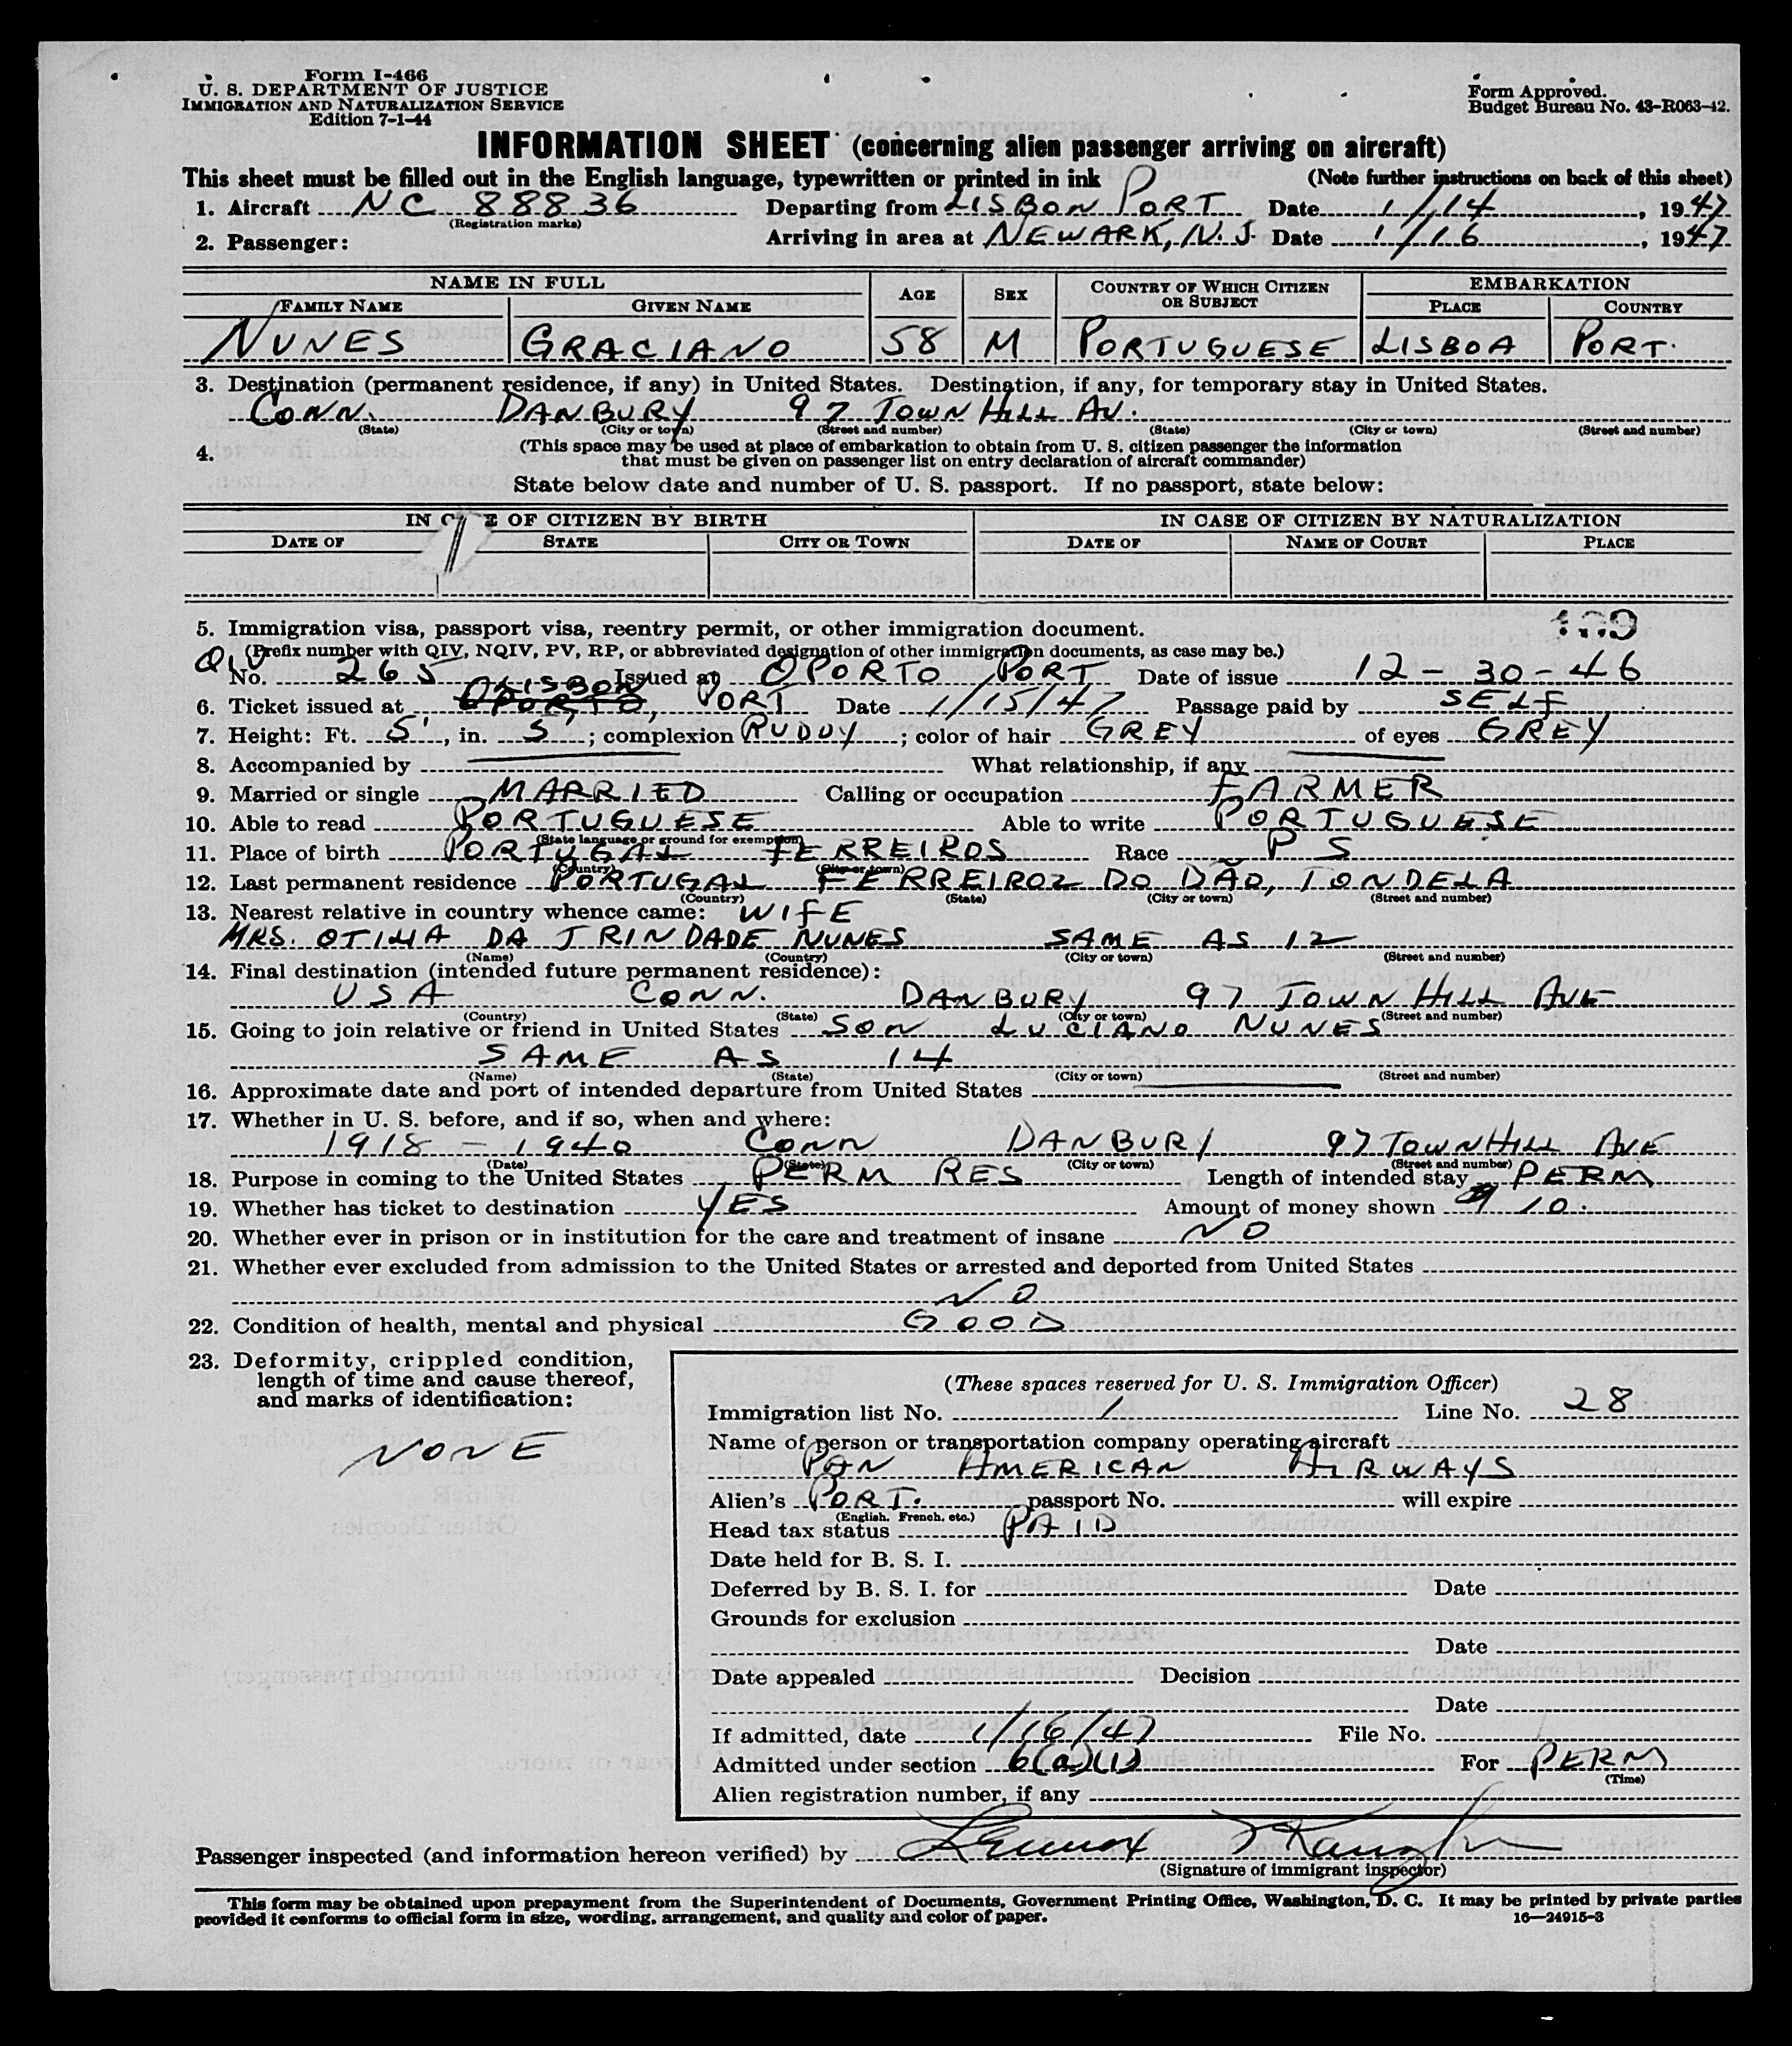 Form I-466
U. S. DEPARTMENT OF JUSTICE
IMMIGRATION AND NATURALIZATION SERVICE
Edition 7-1-44
Form Approved.
Budget Bureau No. 43-R063-42.
INFORMATION SHEET (concerning alien passenger arriving on aircraft)
This sheet must be filled out in the English language, typewritten or printed in ink (Note further instructions on back of this sheet)
1. Aircraft NC 88836 Departing from LISBON PORT Date 1/14, 1947
(Registration marks)
2. Passenger: Arriving in area at NEWARK, N.J. Date 1/16, 1947
NAME IN FULL AGE SEX COUNTRY OF WHICH CITIZEN OR SUBJECT EMBARKATION
FAMILY NAME GIVEN NAME PLACE COUNTRY
NUNES GRACIANO 58 M PORTUGUESE LISBOA PORT.
3. Destination (permanent residence, if any) in United States. Destination, if any, for temporary stay in United States.
CONN. DANBURY 97 TOWN HILL AV.
(State) (City or town) (Street and number) (State) (City or town) (Street and number)
4. (This space may be used at place of embarkation to obtain from U. S. citizen passenger the information
that must be given on passenger list on entry declaration of aircraft commander)
State below date and number of U. S. passport. If no passport, state below:
IN C E OF CITIZEN BY BIRTH IN CASE OF CITIZEN BY NATURALIZATION
DATE OF STATE CITY OR TOWN DATE OF NAME OF COURT PLACE
5. Immigration visa, passport visa, reentry permit, or other immigration document.
(Prefix number with QIV, NQIV, PV, RP, or abbreviated designation of other immigration documents, as case may be.)
QIV No. 265 Issued at OPORTO PORT Date of issue 12-30-46
6. Ticket issued at OPORTO LISBON, PORT Date 1/15/47 Passage paid by SELF
7. Height: Ft. 5', in. 5'; complexion RUDDY; color of hair GREY of eyes GREY
8. Accompanied by What relationship, if any
9. Married or single MARRIED Calling or occupation FARMER
10. Able to read PORTUGUESE Able to write PORTUGUESE
(State language or ground for exemption)
11. Place of birth PORTUGAL FERREIROS Race PS
(Country) (City or town)
12. Last permanent residence PORTUGAL FERREIROZ DO DÃO, TONDELA
(Country) (State) (City or town) (Street and number)
13. Nearest relative in country whence came: WIFE
MRS. OTILIA DA TRINDADE NUNES SAME AS 12
(Name) (Country) (City or town) (Street and number)
14. Final destination (intended future permanent residence):
USA CONN. DANBURY 97 TOWN HILL AVE
(Country) (State) (City or town) (Street and number)
15. Going to join relative or friend in United States SON LUCIANO NUNES
SAME AS 14
(Name) (State) (City or town) (Street and number)
16. Approximate date and port of intended departure from United States
17. Whether in U. S. before, and if so, when and where:
1918 - 1940 CONN DANBURY 97 TOWNHILL AVE
(Date) (State) (City or town) (Street and number)
18. Purpose in coming to the United States PERM RES Length of intended stay PERM
19. Whether has ticket to destination YES Amount of money shown $10.
20. Whether ever in prison or in institution for the care and treatment of insane NO
21. Whether ever excluded from admission to the United States or arrested and deported from United States
NO
22. Condition of health, mental and physical GOOD
23. Deformity, crippled condition,
length of time and cause thereof,
and marks of identification:
NONE
(These spaces reserved for U. S. Immigration Officer)
Immigration list No. 1 Line No. 28
Name of person or transportation company operating aircraft
PAN AMERICAN AIRWAYS
Alien's PORT. passport No. will expire
(English. French. etc.)
Head tax status PAID
Date held for B. S. I.
Deferred by B. S. I. for Date
Grounds for exclusion
Date
Date appealed Decision
Date
If admitted, date 1/16/47 File No.
Admitted under section 6(a)(1) For PERM
(Time)
Alien registration number, if any
Passenger inspected (and information hereon verified) by
(Signature of immigrant inspector)
This form may be obtained upon prepayment from the Superintendent of Documents, Government Printing Office, Washington, D. C. It may be printed by private parties
provided it conforms to official form in size, wording, arrangement, and quality and color of paper. 16—24915-3